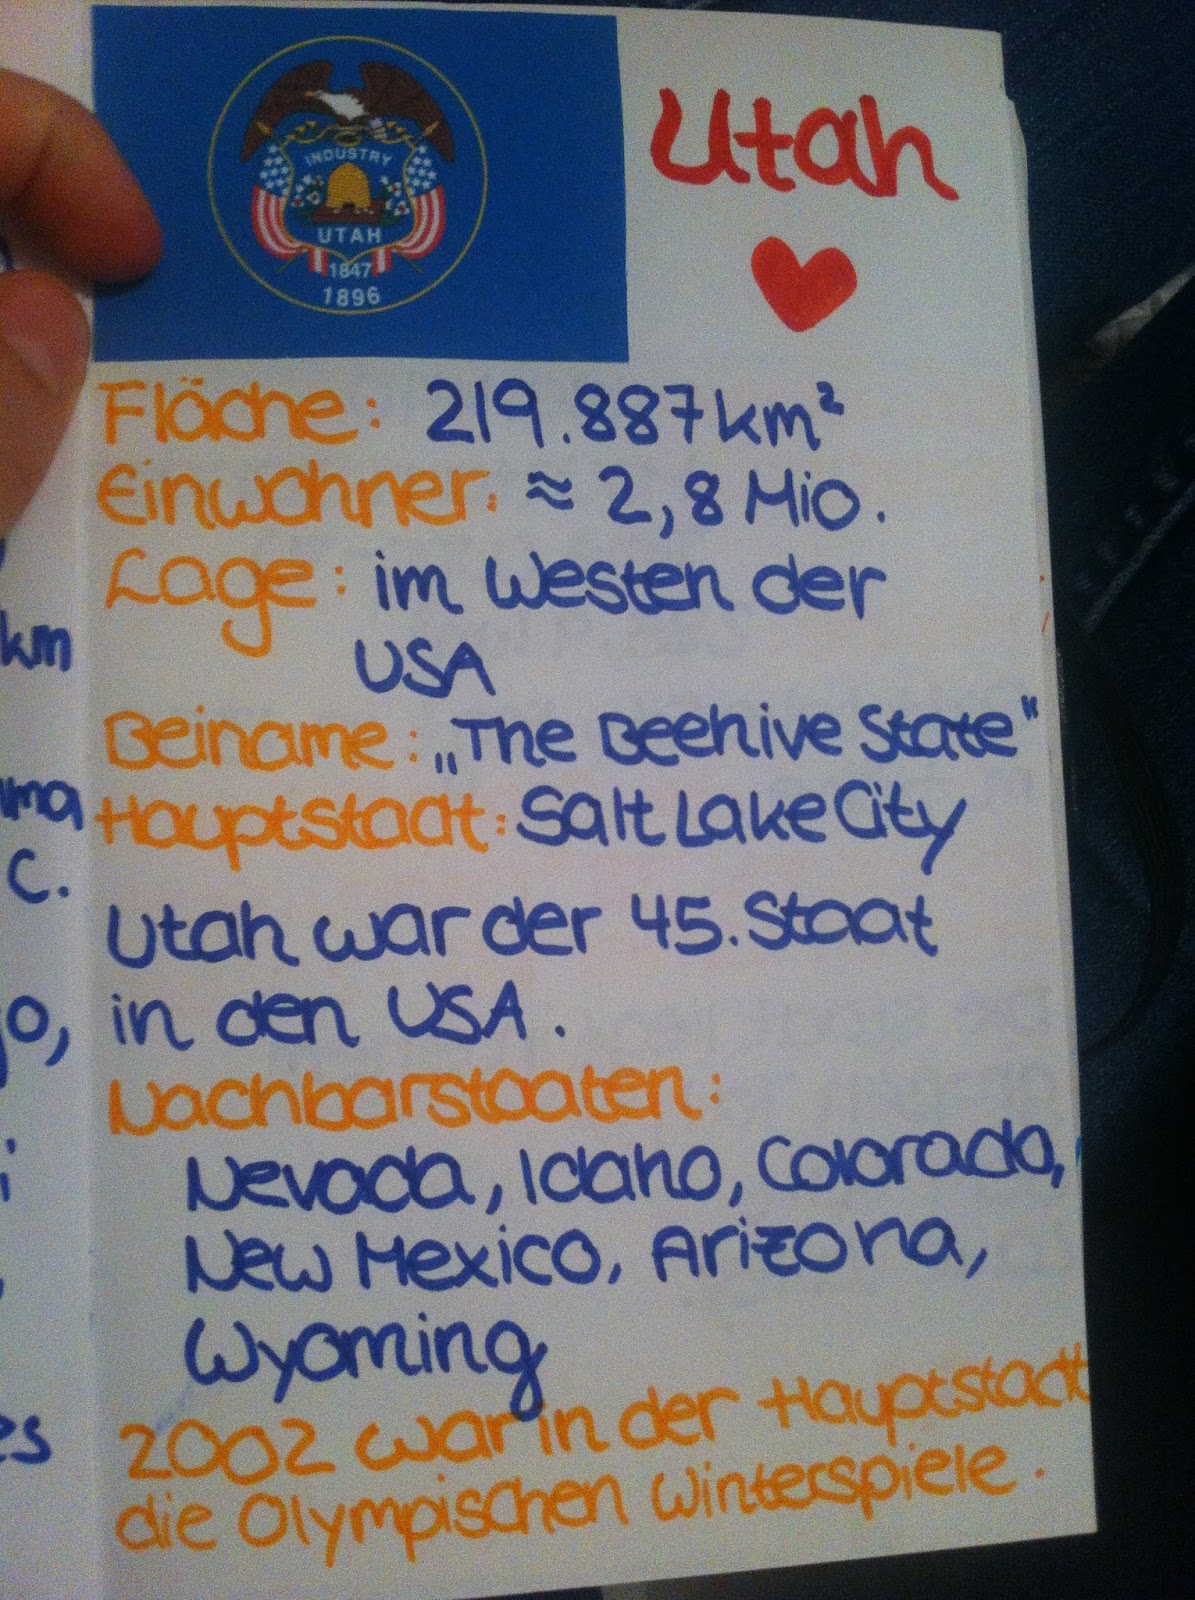 INDUSTRY
UTAH
1847
1896
Utah
Fläche: 219.887 km²
Einwohner: ≈ 2,8 Mio.
Lage: im Westen der
USA
Beiname: „The Beehive State"
Hauptstadt: Salt Lake City
Utah war der 45. Staat
in den USA.
Nachbarstaaten:
Nevada, Idaho, Colorado,
New Mexico, Arizona,
Wyoming
2002 war in der Hauptstadt
die Olympischen Winterspiele.
km
C.